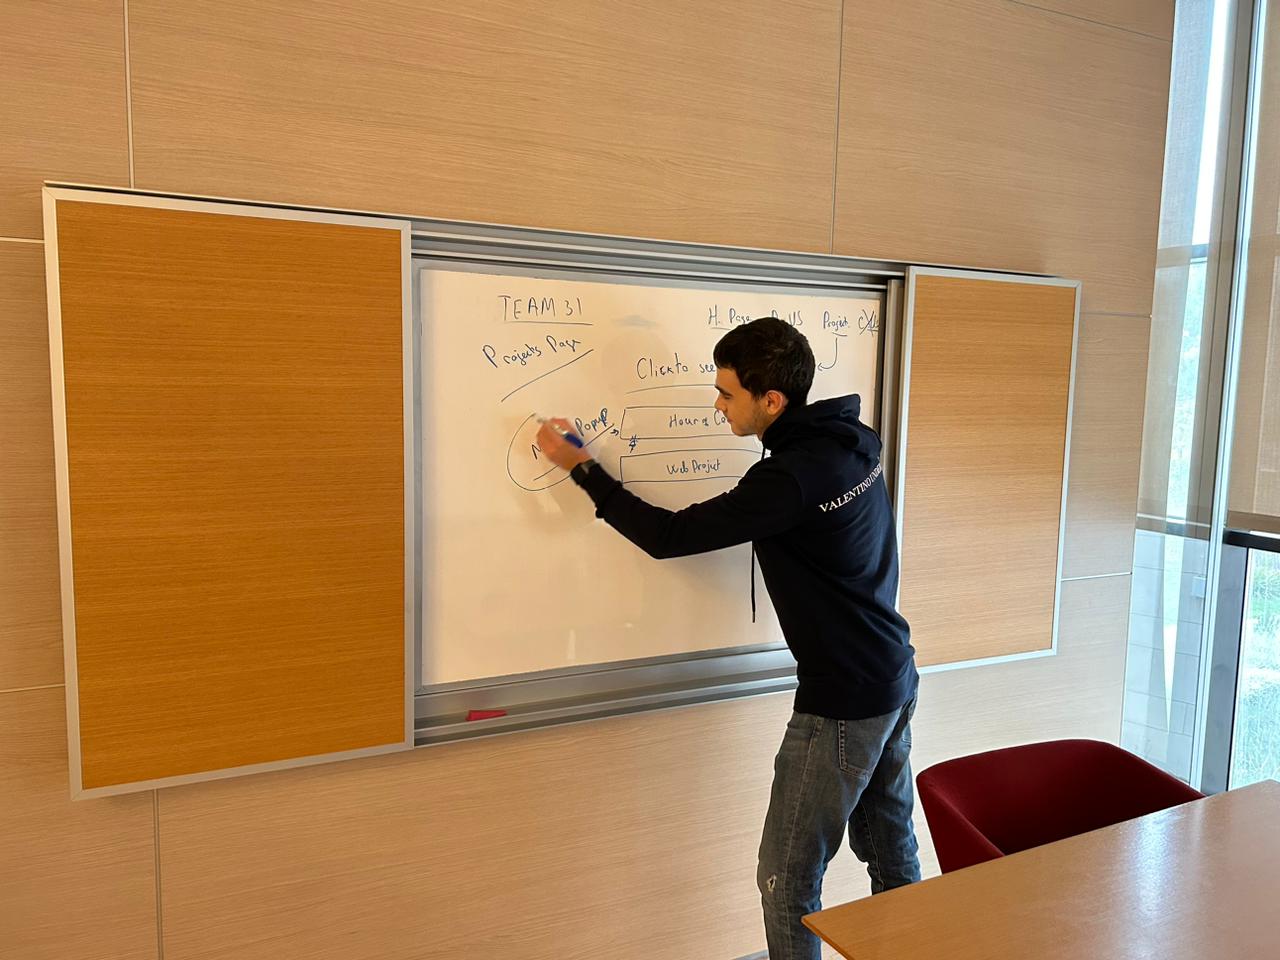 TEAM 31
H. Page
US
Project
Projects Page
Click to see
Popup
Hour of Co
Web Project
VALENTINO